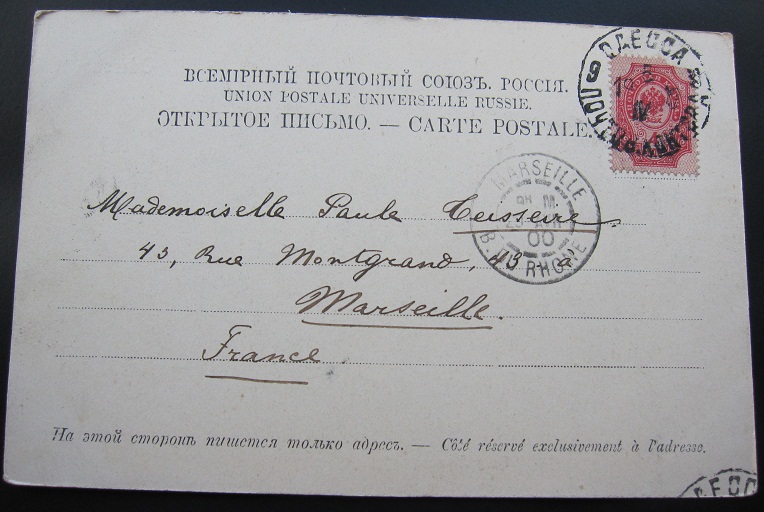 ВСЕМІРНЫЙ ПОЧТОВЫЙ СОЮЗЪ. РОССІЯ.
UNION POSTALE UNIVERSELLE RUSSIE.
ОТКРЫТОЕ ПИСЬМО. — CARTE POSTALE.
ОДЕССА
9
IV
MARSEILLE
8E M
AVR
00
B. DU RHONE
Mademoiselle Paule Teisseire
43, Rue Montgrand, 43
Marseille.
France
На этой сторонѣ пишется только адресъ. — Côté réservé exclusivement à l'adresse.